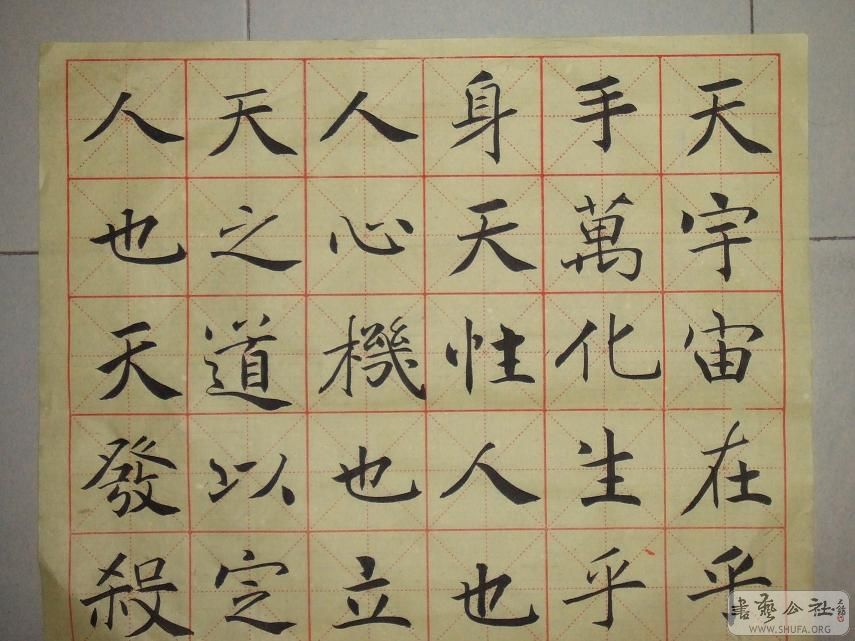 天宇宙在乎
手萬化生乎
身天性人也
人心機也立
天之道以定
人也天發殺
書藝公社
WWW.SHUFA.ORG